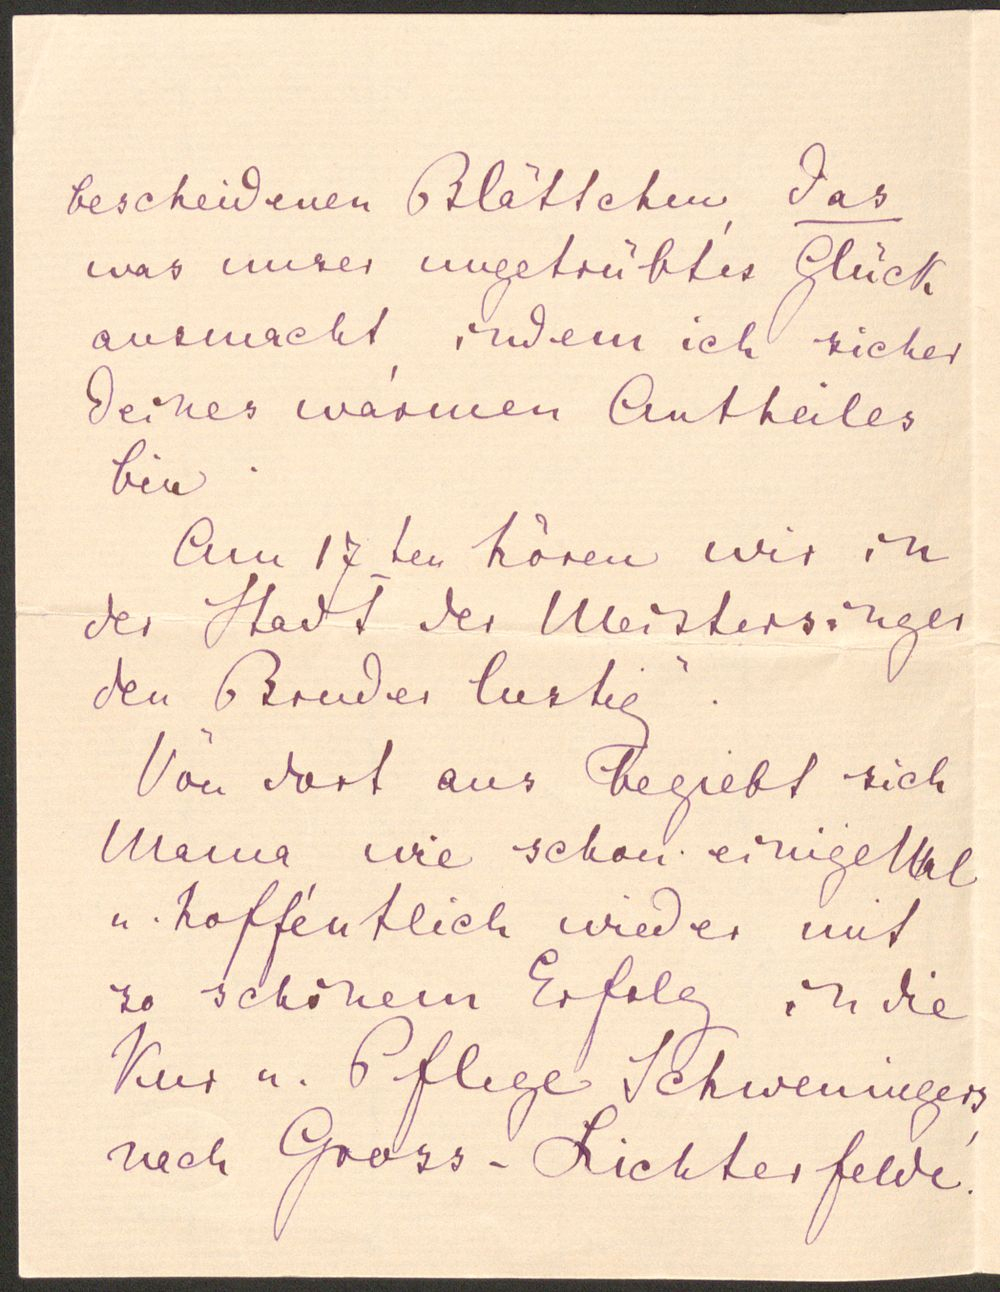 bescheidenen Blättchen, das
was unser ungetrübtes Glück
ausmacht, indem ich sicher
Deines warmen Antheiles
bin.
Am 17ten hören wir in
der Stadt der Meistersinger
den Bruder lustig".
Von dort aus begiebt sich
Mama wie schon einige Mal
u. hoffentlich wieder mit
so schönem Erfolg in die
Kur u. Pflege Schweningers,
nach Gross-Lichterfelde.